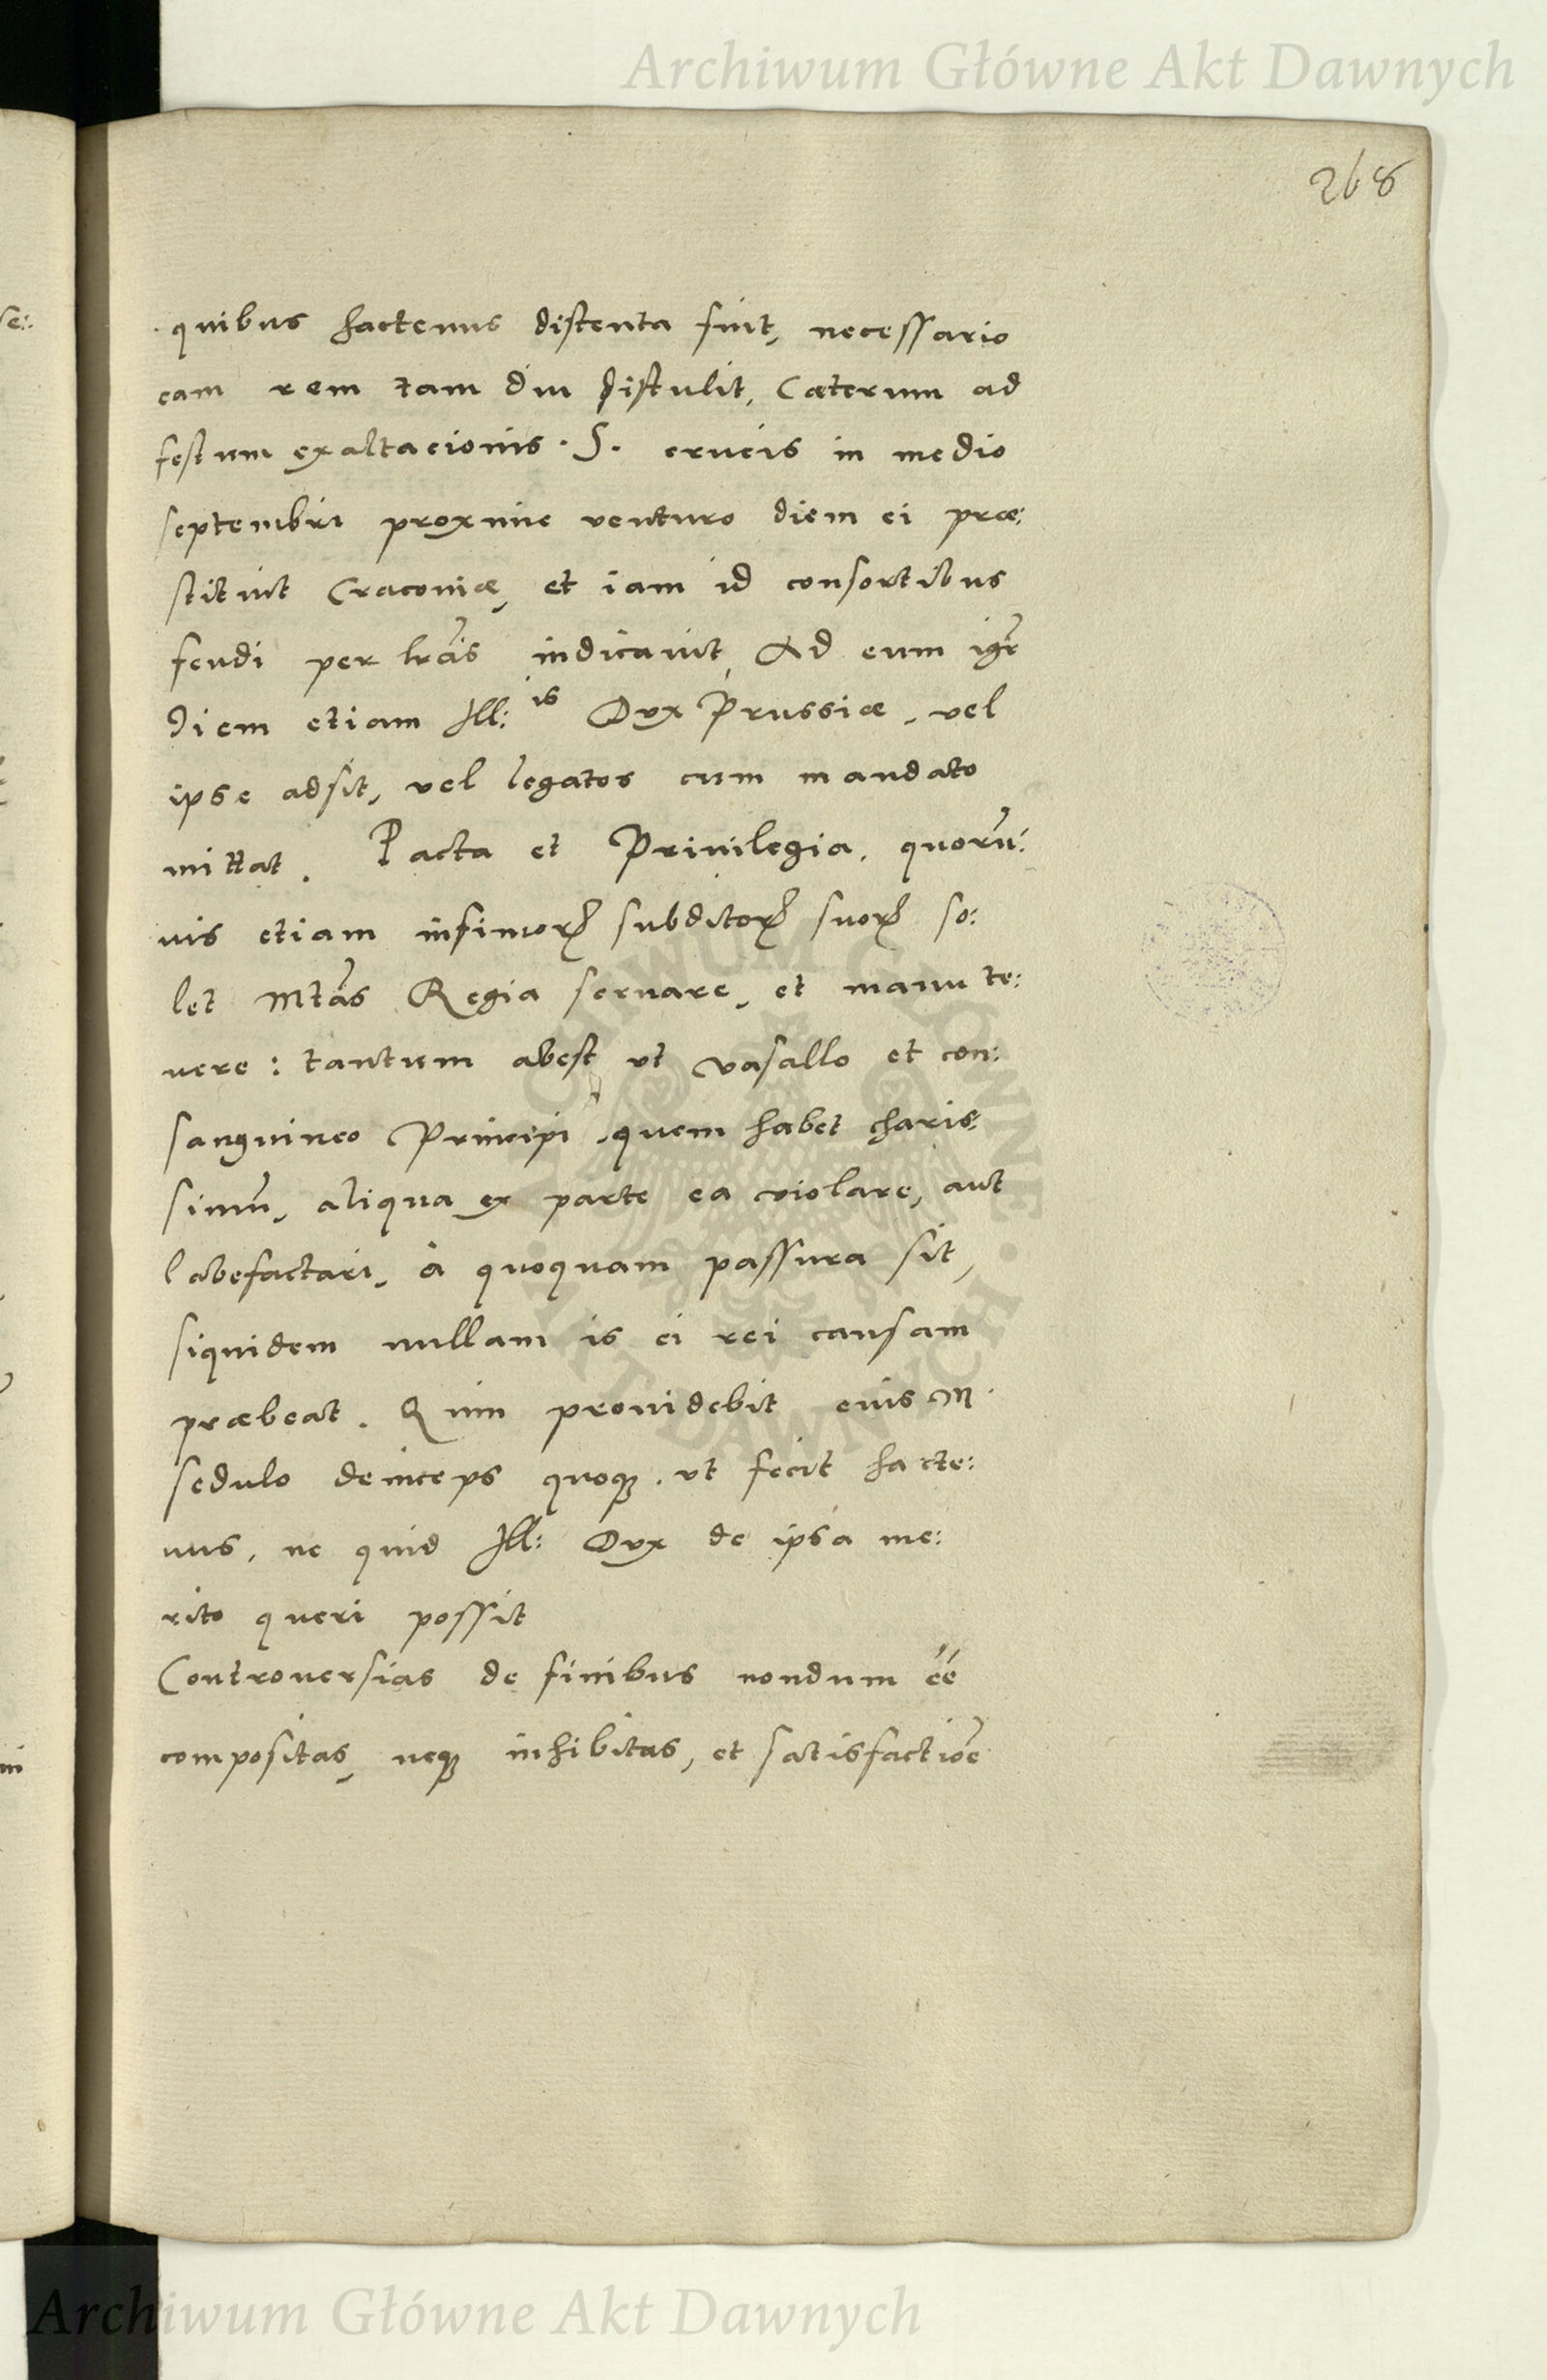 Archiwum Główne Akt Dawnych
268
quibus hactenus distenta fuit, necessario
eam rem tam diu distulit, Cæterum ad
festum exaltacionis · S. crucis in medio
septembri proxime venturo diem ei præ:
stituit Cracouiæ, et iam id consortibus
feudi per lr̃as indicauit, Ad eum igr̃
diem etiam Ill: is Dux Prussiæ, vel
ipse adsit, vel legatos cum mandato
mittat. Pacta et Priuilegia, quorũ:
uis etiam infimorꝝ subditorꝝ suorꝝ so:
let Mtãs Regia seruare, et manu te:
nere: tantum abest ut vasallo et con:
sanguineo Principi, quem habet charis:
simũ, aliqua ex parte ea violare, aut
labefactari, à quoquam passura sit,
siquidem nullam is ei rei causam
præbeat. Quin prouidebit eius M.
sedulo deinceps quoqꝫ, ut fecit hacte:
nus, ne quid Ill: Dux de ipsa me:
rito queri possit
Controuersias de finibus nondum éé
compositas, neqꝫ inhibitas, et satisfactiõe
ARCHIWUM GŁÓWNE AKT DAWNYCH
Archiwum Główne Akt Dawnych